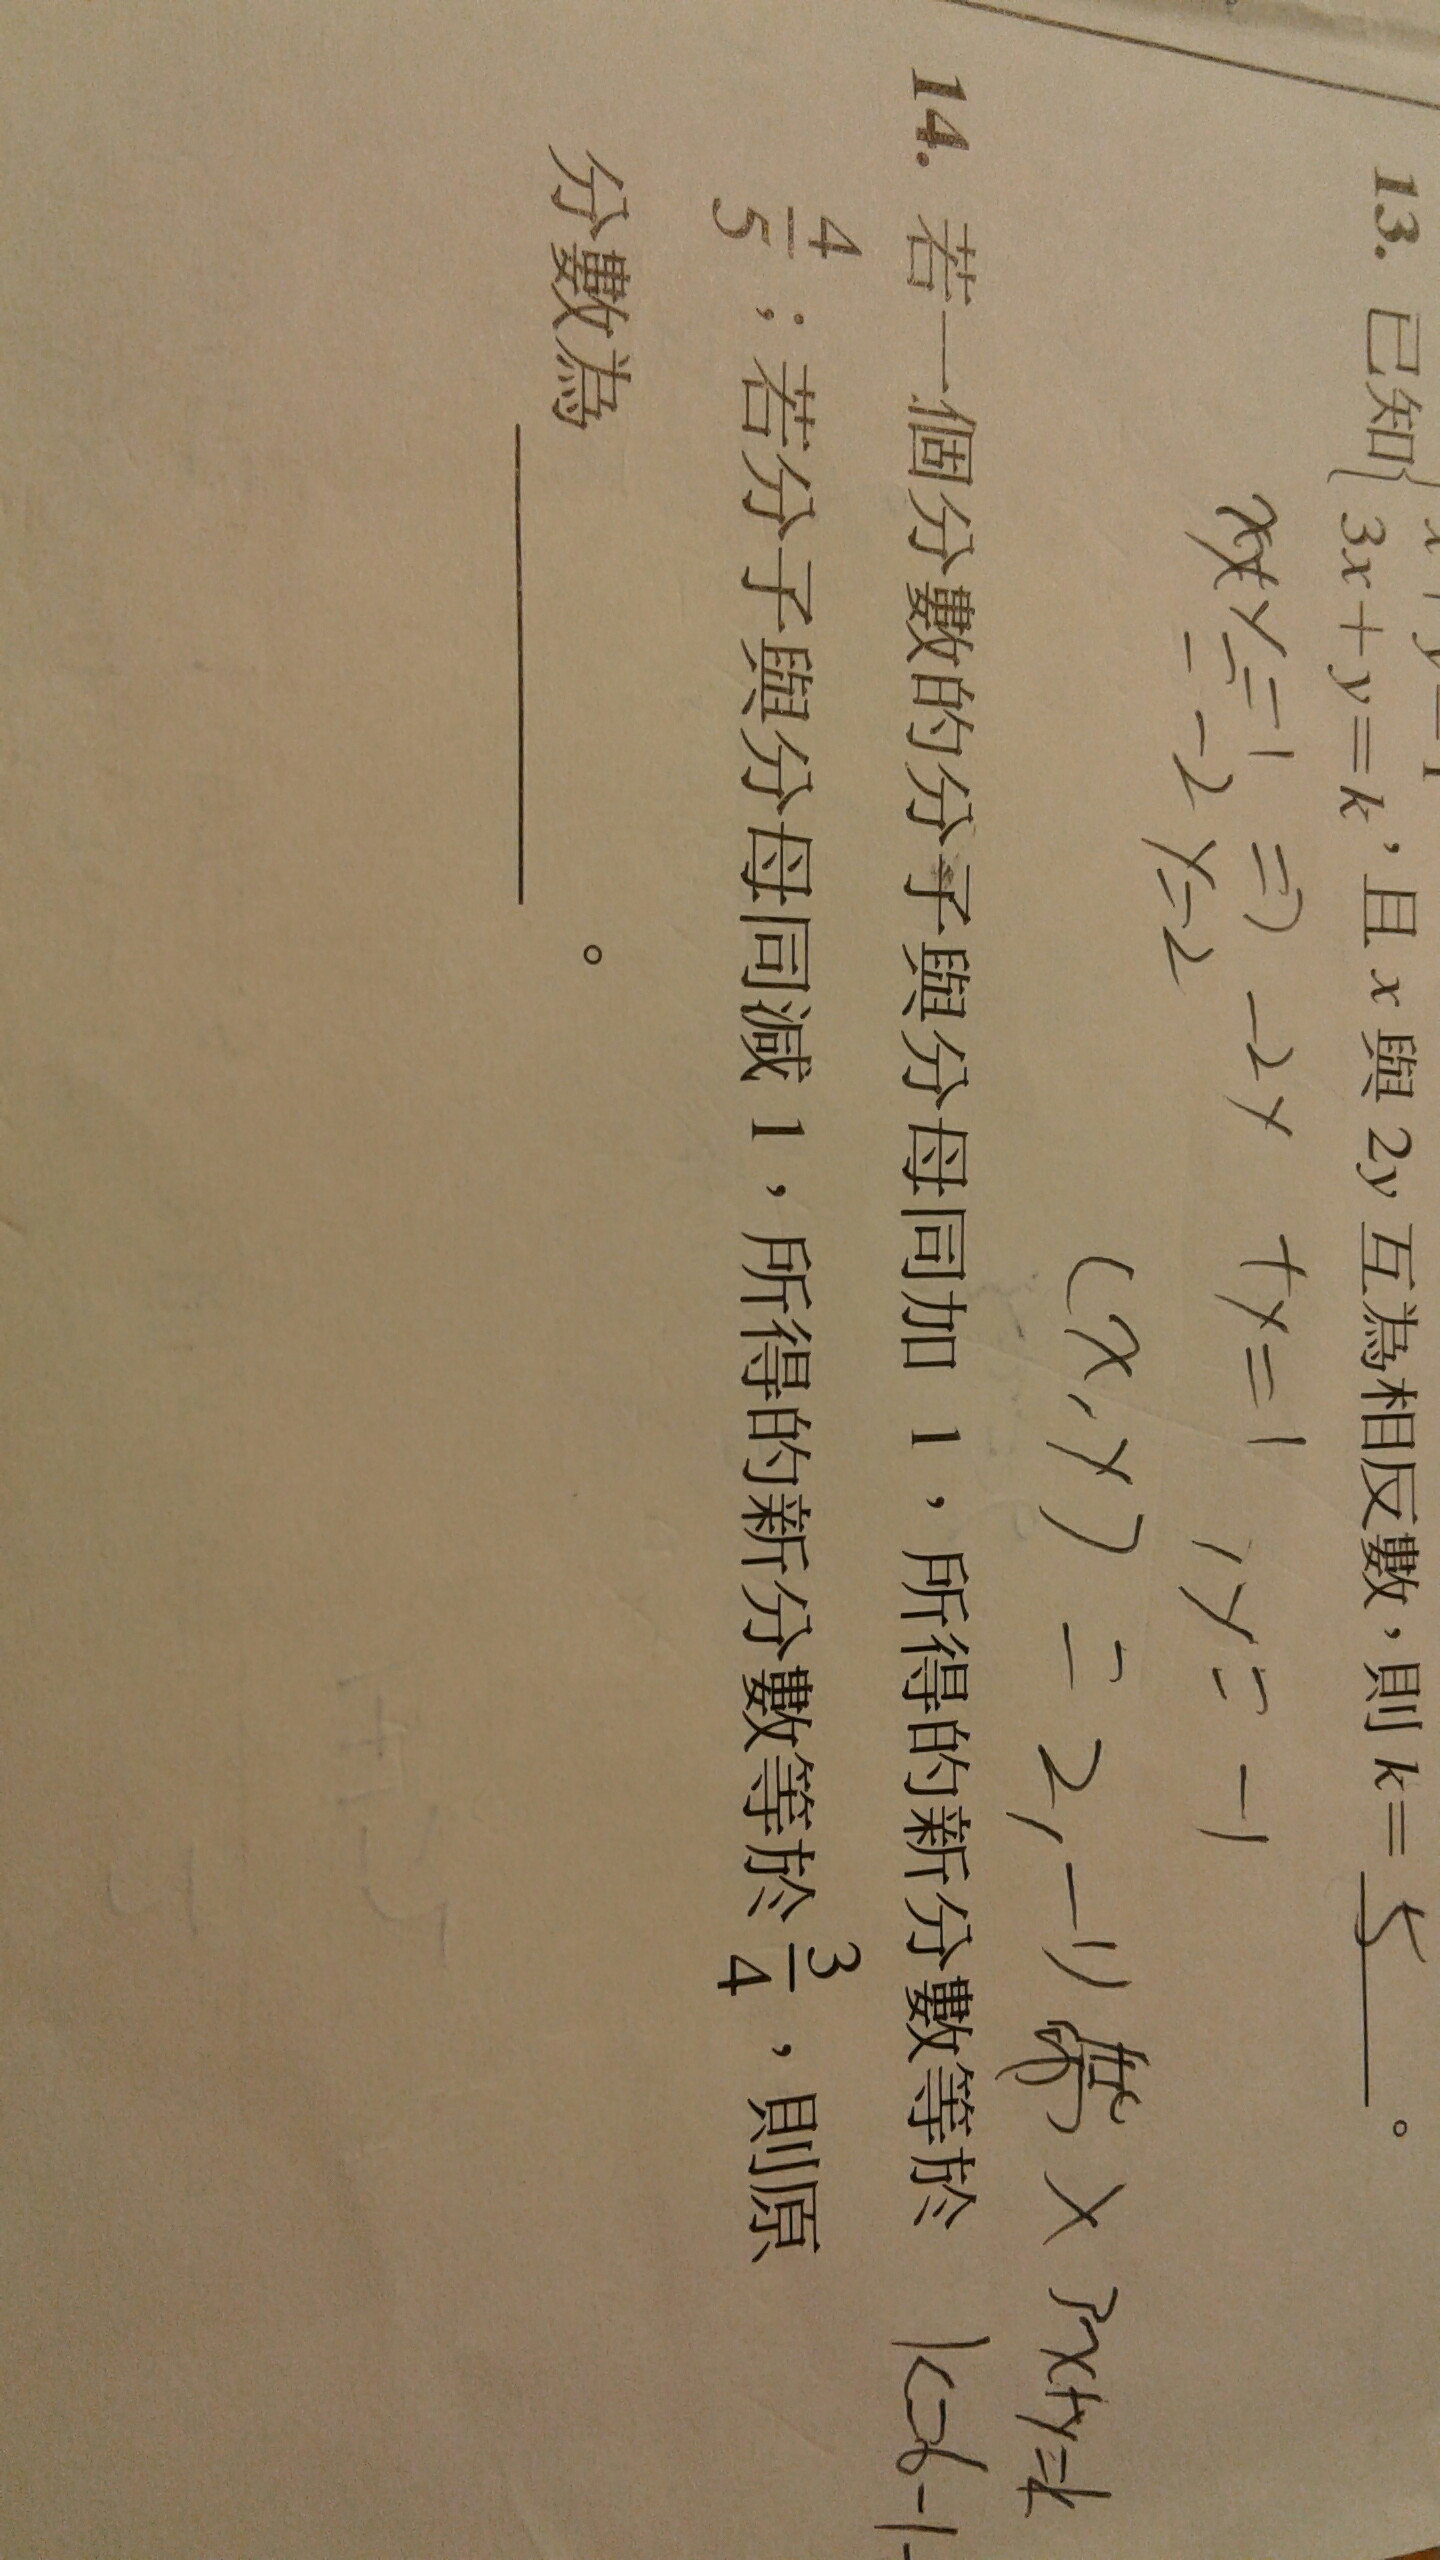 x+y=1
13. 已知{3x+y=k，且 x 與 2y 互為相反數，則 k= 5 。
x+y=1 => -2y +y=1 , y= -1
= -2 y=2
(x,y) = 2,-1) 帶入 3x+y=k
14. 若一個分數的分子與分母同加 1，所得的新分數等於 k=6-1
4/5；若分子與分母同減 1，所得的新分數等於 3/4，則原
分數為 ______ 。